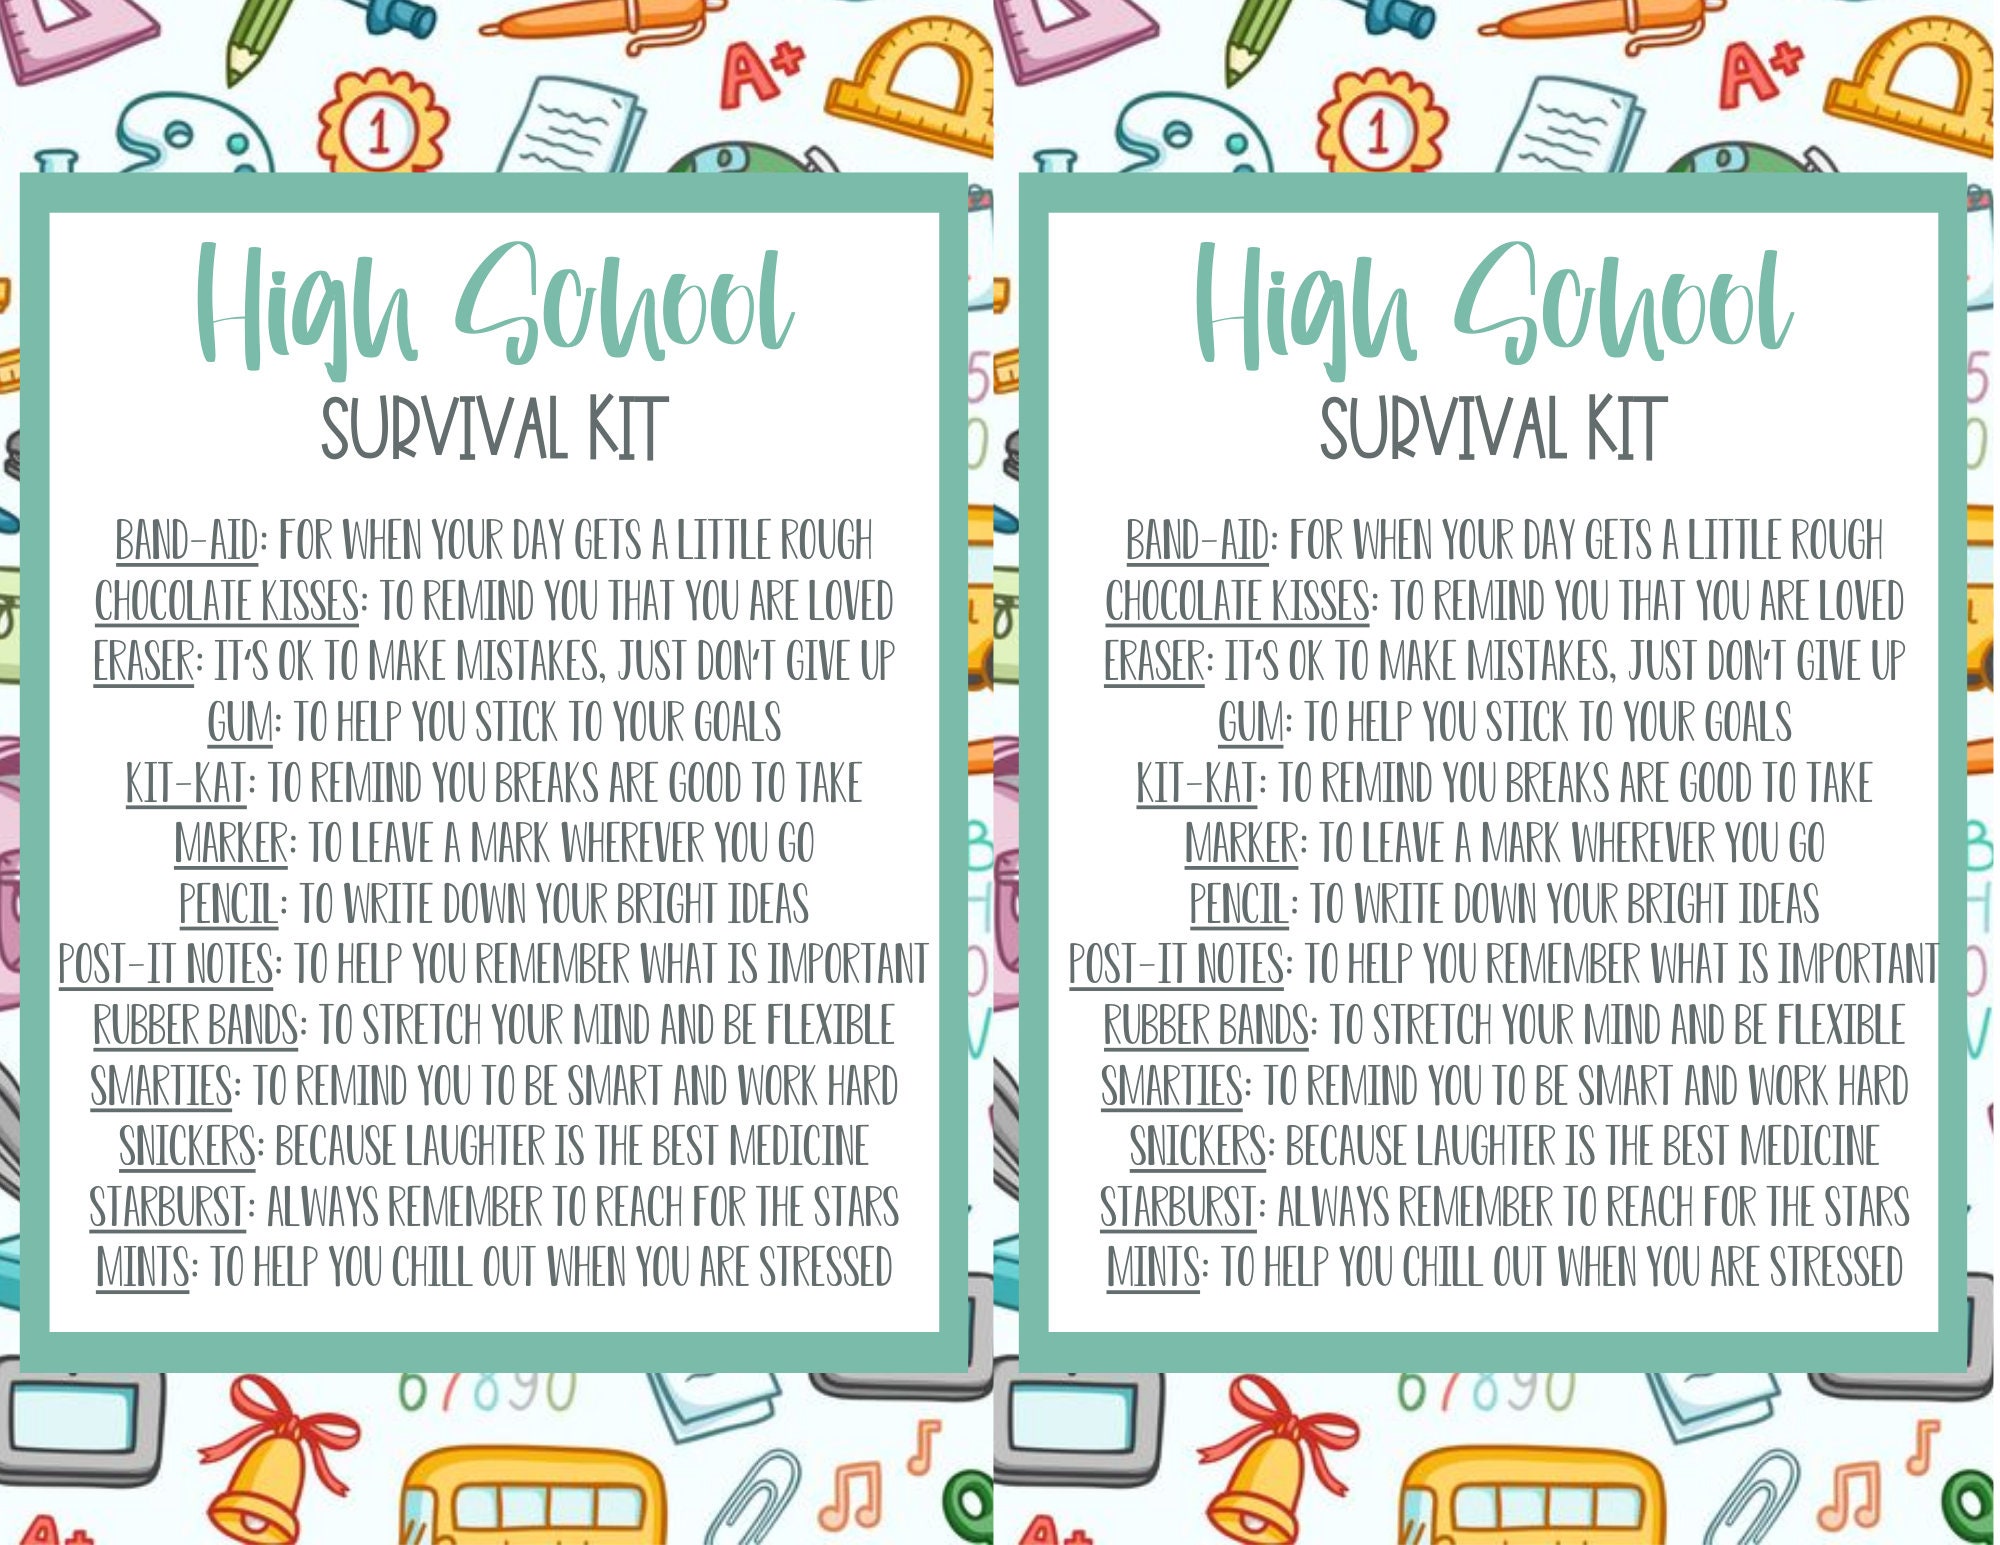 A+
1
High School
SURVIVAL KIT
BAND-AID: FOR WHEN YOUR DAY GETS A LITTLE ROUGH
CHOCOLATE KISSES: TO REMIND YOU THAT YOU ARE LOVED
ERASER: IT'S OK TO MAKE MISTAKES, JUST DON'T GIVE UP
GUM: TO HELP YOU STICK TO YOUR GOALS
KIT-KAT: TO REMIND YOU BREAKS ARE GOOD TO TAKE
MARKER: TO LEAVE A MARK WHEREVER YOU GO
PENCIL: TO WRITE DOWN YOUR BRIGHT IDEAS
POST-IT NOTES: TO HELP YOU REMEMBER WHAT IS IMPORTANT
RUBBER BANDS: TO STRETCH YOUR MIND AND BE FLEXIBLE
SMARTIES: TO REMIND YOU TO BE SMART AND WORK HARD
SNICKERS: BECAUSE LAUGHTER IS THE BEST MEDICINE
STARBURST: ALWAYS REMEMBER TO REACH FOR THE STARS
MINTS: TO HELP YOU CHILL OUT WHEN YOU ARE STRESSED
67890
A+
A+
1
High School
SURVIVAL KIT
BAND-AID: FOR WHEN YOUR DAY GETS A LITTLE ROUGH
CHOCOLATE KISSES: TO REMIND YOU THAT YOU ARE LOVED
ERASER: IT'S OK TO MAKE MISTAKES, JUST DON'T GIVE UP
GUM: TO HELP YOU STICK TO YOUR GOALS
KIT-KAT: TO REMIND YOU BREAKS ARE GOOD TO TAKE
MARKER: TO LEAVE A MARK WHEREVER YOU GO
PENCIL: TO WRITE DOWN YOUR BRIGHT IDEAS
POST-IT NOTES: TO HELP YOU REMEMBER WHAT IS IMPORTANT
RUBBER BANDS: TO STRETCH YOUR MIND AND BE FLEXIBLE
SMARTIES: TO REMIND YOU TO BE SMART AND WORK HARD
SNICKERS: BECAUSE LAUGHTER IS THE BEST MEDICINE
STARBURST: ALWAYS REMEMBER TO REACH FOR THE STARS
MINTS: TO HELP YOU CHILL OUT WHEN YOU ARE STRESSED
67890
A+